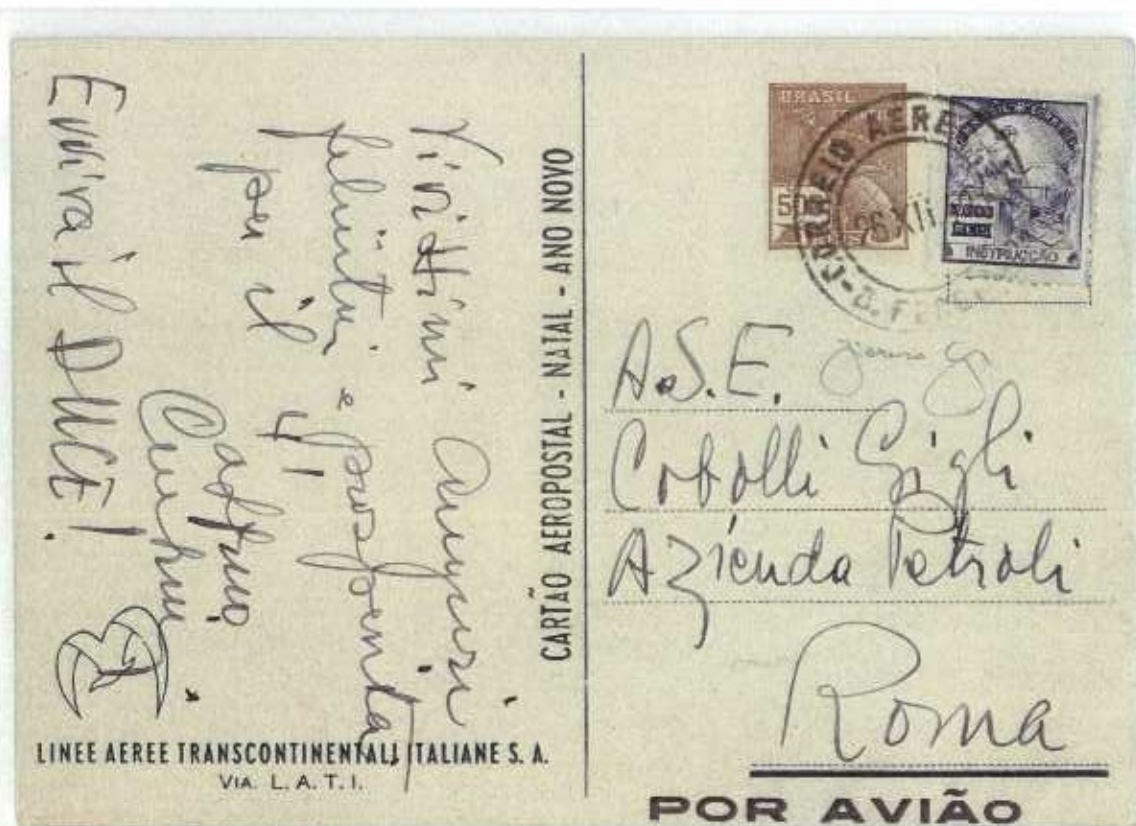 Vivissimi Auguri
felicità e prosperità
per il
41
Evviva il DUCE!
CARTÃO AEROPOSTAL - NATAL - ANO NOVO
LINEE AEREE TRANSCONTINENTALI ITALIANE S. A.
VIA. L. A. T. I.
BRASIL
CORREIO AEREO
26 XII
INSTRUCÇÃO
A.S.E.
Cobolli Gigli
Azienda Petroli
Roma
POR AVIÃO